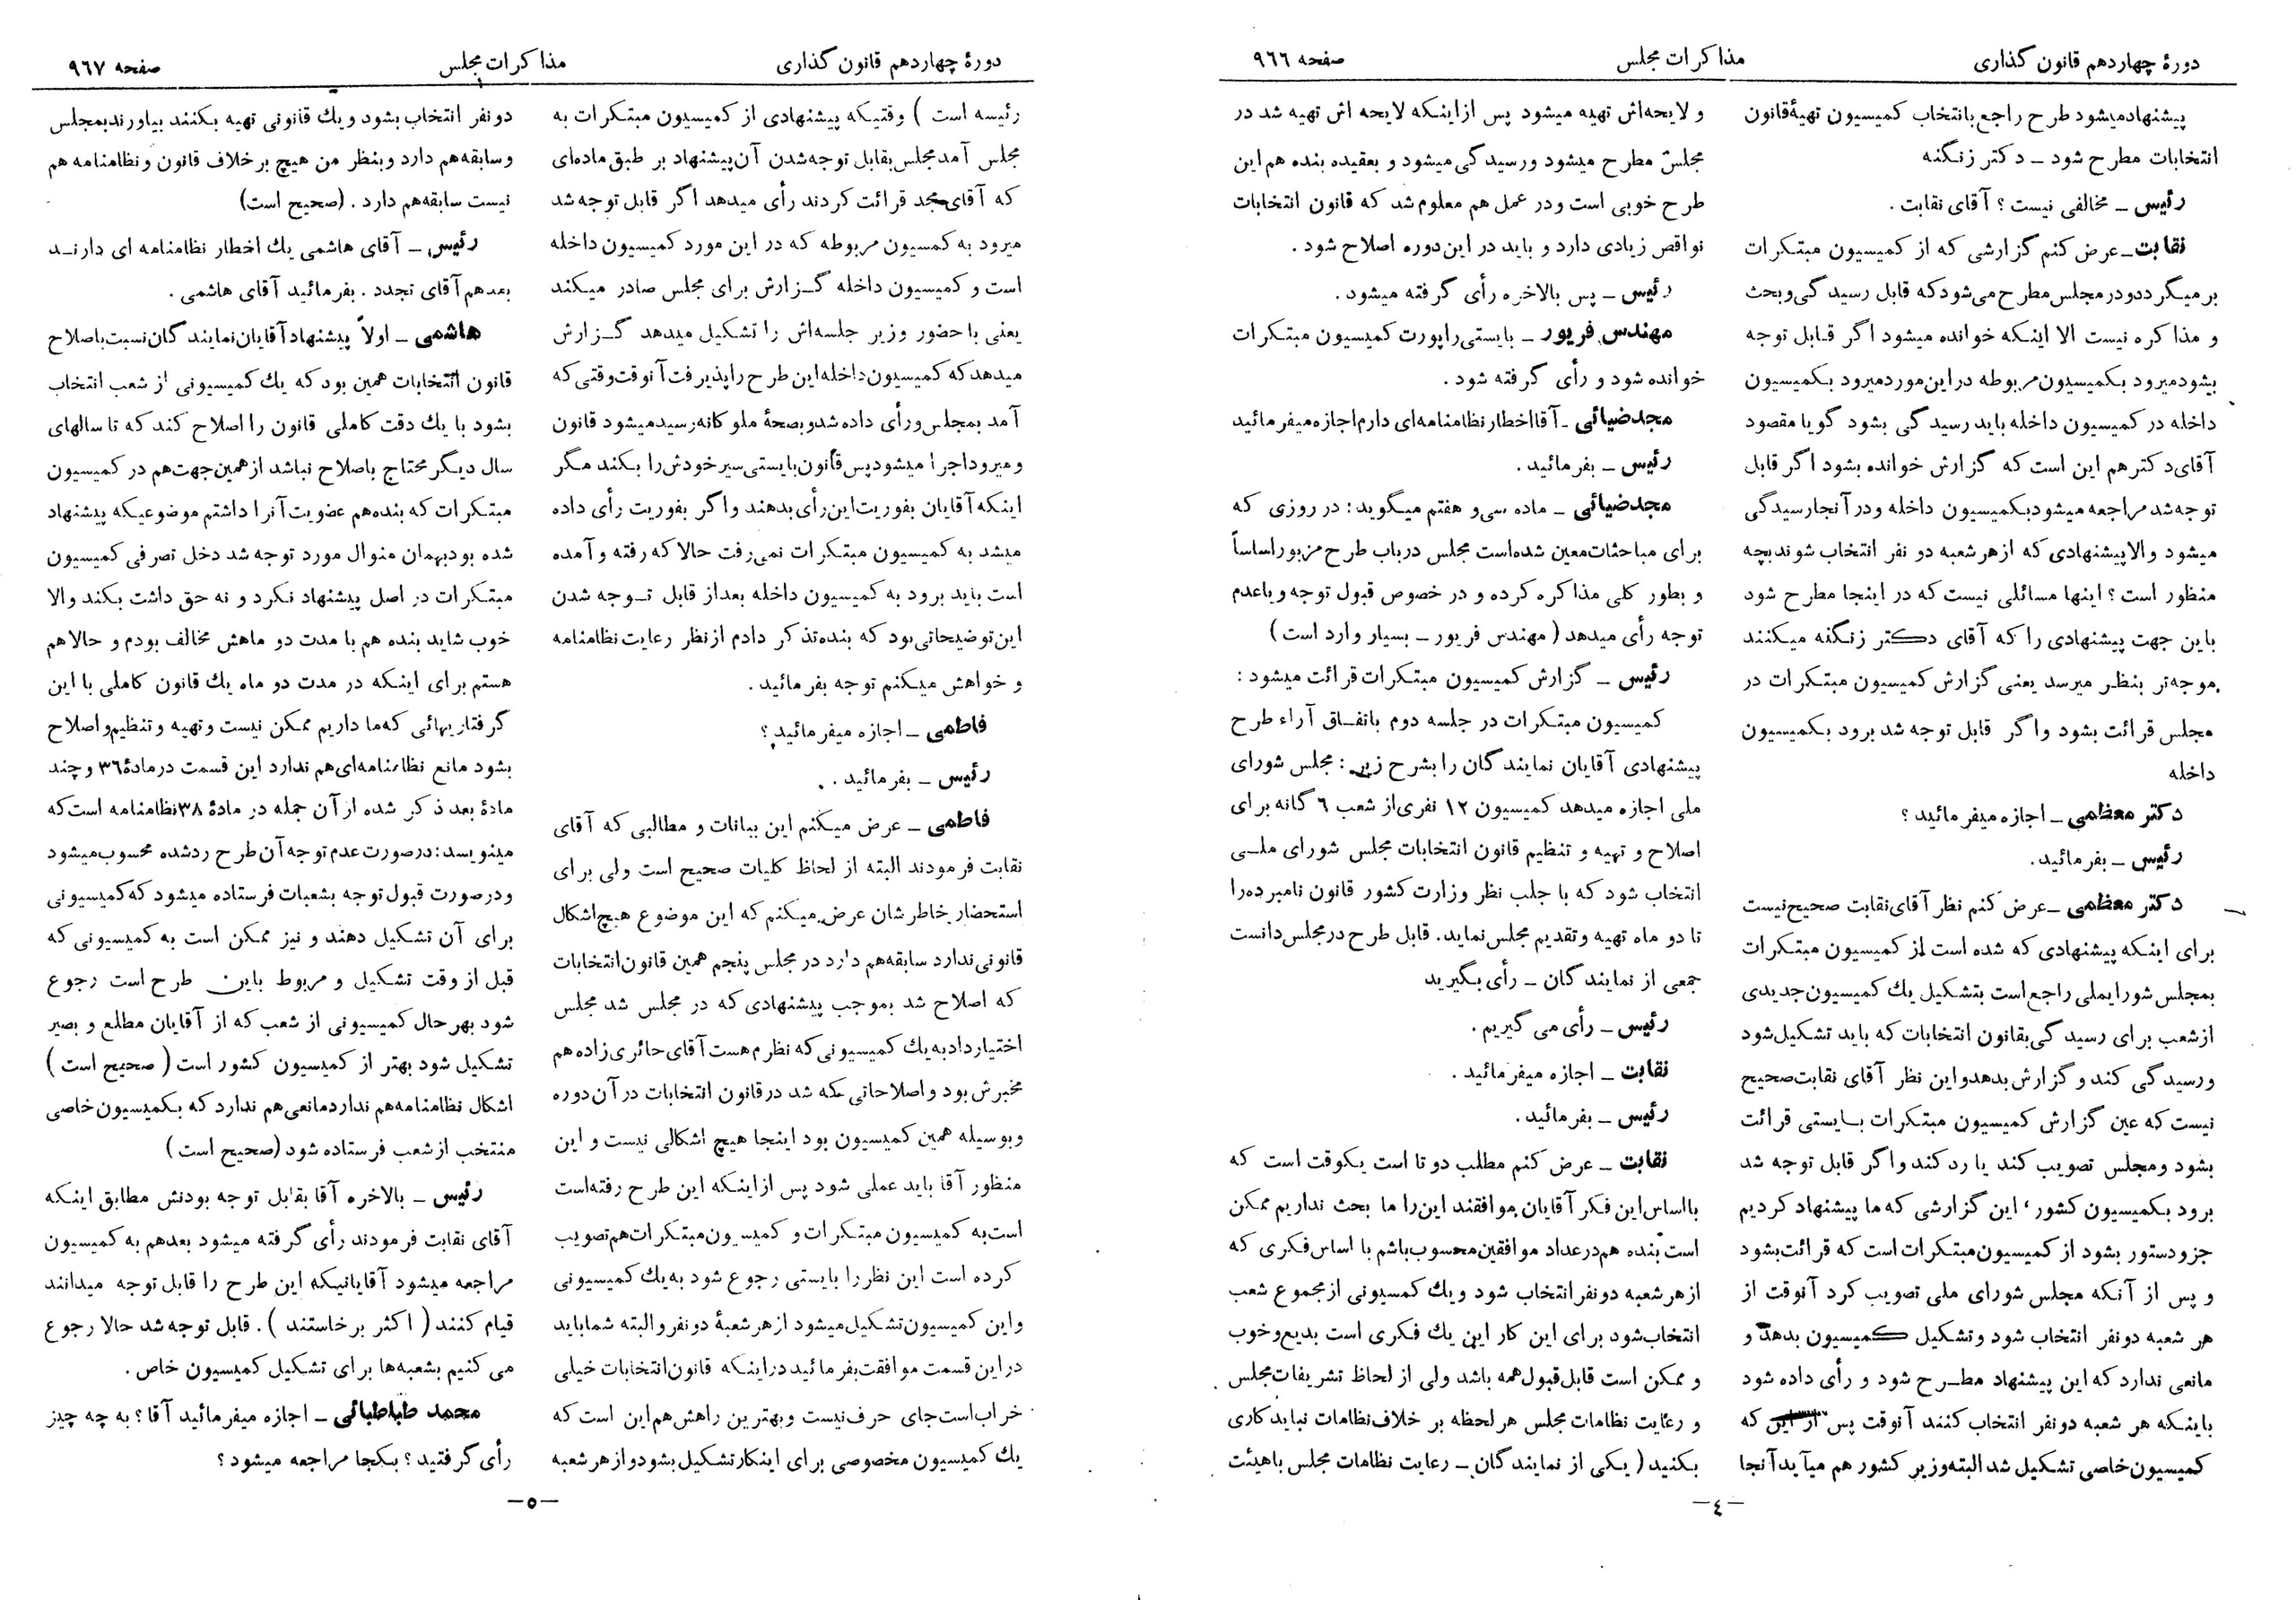 دورهٔ چهاردهم قانون گذاری
مذاکرات مجلس
صفحه ۹۶۶
پیشنهاد میشود طرح راجع بانتخاب کمیسیون تهیهٔ قانون
انتخابات مطرح شود ـ دکتر زنگنه
رئیس ـ مخالفی نیست ؟ آقای نقابت .
نقابت ـ عرض کنم گزارشی که از کمیسیون مبتکرات
برمیگردد و در مجلس مطرح می‌شود که قابل رسیدگی و بحث
و مذاکره نیست الا اینکه خوانده میشود اگر قابل توجه
بشود میرود بکمیسیون مربوطه در این مورد میرود بکمیسیون
داخله در کمیسیون داخله باید رسیدگی بشود گویا مقصود
آقای دکتر هم این است که گزارش خوانده بشود اگر قابل
توجه شد مراجعه میشود بکمیسیون داخله و در آنجا رسیدگی
میشود و الا پیشنهادی که از هر شعبه دو نفر انتخاب شوند بچه
منظور است ؟ اینها مسائلی نیست که در اینجا مطرح شود
باین جهت پیشنهادی را که آقای دکتر زنگنه میکنند
موجه‌تر بنظر میرسد یعنی گزارش کمیسیون مبتکرات در
مجلس قرائت بشود و اگر قابل توجه شد برود بکمیسیون
داخله
دکتر معظمی ـ اجازه میفرمائید ؟
رئیس ـ بفرمائید .
دکتر معظمی ـ عرض کنم نظر آقای نقابت صحیح نیست
برای اینکه پیشنهادی که شده است از کمیسیون مبتکرات
بمجلس شورایملی راجع است بتشکیل یك کمیسیون جدیدی
از شعب برای رسیدگی بقانون انتخابات که باید تشکیل شود
و رسیدگی کند و گزارش بدهد و این نظر آقای نقابت صحیح
نیست که عین گزارش کمیسیون مبتکرات بایستی قرائت
بشود و مجلس تصویب کند یا رد کند و اگر قابل توجه شد
برود بکمیسیون کشور ، این گزارشی که ما پیشنهاد کردیم
جزو دستور بشود از کمیسیون مبتکرات است که قرائت بشود
و پس از آنکه مجلس شورای ملی تصویب کرد آنوقت از
هر شعبه دو نفر انتخاب شود و تشکیل کمیسیون بدهد و
مانعی ندارد که این پیشنهاد مطرح شود و رأی داده شود
باینکه هر شعبه دونفر انتخاب کنند آنوقت پس از این که
کمیسیون خاصی تشکیل شد البته وزیر کشور هم میآید آنجا
و لایحه‌اش تهیه میشود پس از اینکه لایحه اش تهیه شد در
مجلس مطرح میشود و رسیدگی میشود و بعقیده بنده هم این
طرح خوبی است و در عمل هم معلوم شد که قانون انتخابات
نواقص زیادی دارد و باید در این دوره اصلاح شود .
رئیس ـ پس بالاخره رأی گرفته میشود .
مهندس فریور ـ بایستی راپورت کمیسیون مبتکرات
خوانده شود و رأی گرفته شود .
مجدضیائی ـ آقا اخطار نظامنامه‌ای دارم اجازه میفرمائید
رئیس ـ بفرمائید .
مجدضیائی ـ ماده سی و هفتم میگوید : در روزی که
برای مباحثات معین شده‌است مجلس در باب طرح مزبور اساساً
و بطور کلی مذاکره کرده و در خصوص قبول توجه و یا عدم
توجه رأی میدهد ( مهندس فریور ـ بسیار وارد است )
رئیس ـ گزارش کمیسیون مبتکرات قرائت میشود :
کمیسیون مبتکرات در جلسه دوم باتفاق آراء طرح
پیشنهادی آقایان نمایندگان را بشرح زیر : مجلس شورای
ملی اجازه میدهد کمیسیون ۱۲ نفری از شعب ۶ گانه برای
اصلاح و تهیه و تنظیم قانون انتخابات مجلس شورای ملی
انتخاب شود که با جلب نظر وزارت کشور قانون نامبرده را
تا دو ماه تهیه و تقدیم مجلس نماید . قابل طرح در مجلس دانست
جمعی از نمایندگان ـ رأی بگیرید
رئیس ـ رأی می گیریم .
نقابت ـ اجازه میفرمائید .
رئیس ـ بفرمائید .
نقابت ـ عرض کنم مطلب دو تا است یکوقت است که
بااساس این فکر آقایان موافقند این را ما بحث نداریم ممکن
است بنده هم در عداد موافقین محسوب باشم با اساس فکری که
از هر شعبه دونفر انتخاب شود و یك کمسیونی از مجموع شعب
انتخاب شود برای این کار این یك فکری است بدیع و خوب
و ممکن است قابل قبول همه باشد ولی از لحاظ تشریفات مجلس
و رعایت نظامات مجلس هر لحظه بر خلاف نظامات نباید کاری
بکنید ( یکی از نمایندگان ـ رعایت نظامات مجلس باهیئت
ـ ٤ ـ
دورهٔ چهاردهم قانون گذاری
مذاکرات مجلس
صفحه ۹۶۷
رئیسه است ) وقتیکه پیشنهادی از کمیسیون مبتکرات به
مجلس آمد مجلس بقابل توجه شدن آن پیشنهاد بر طبق ماده‌ای
که آقای مجد قرائت کردند رأی میدهد اگر قابل توجه شد
میرود به کمسیون مربوطه که در این مورد کمیسیون داخله
است و کمیسیون داخله گزارش برای مجلس صادر میکند
یعنی با حضور وزیر جلسه‌اش را تشکیل میدهد گزارش
میدهد که کمیسیون داخله این طرح را پذیرفت آنوقت وقتی که
آمد بمجلس و رأی داده شد و بصحهٔ ملوکانه رسید میشود قانون
و میرود اجرا میشود پس قانون بایستی سیر خودش را بکند مگر
اینکه آقایان بفوریت این رأی بدهند و اگر بفوریت رأی داده
میشد به کمیسیون مبتکرات نمی‌رفت حالا که رفته و آمده
است باید برود به کمیسیون داخله بعد از قابل توجه شدن
این توضیحاتی بود که بنده تذکر دادم از نظر رعایت نظامنامه
و خواهش میکنم توجه بفرمائید .
فاطمی ـ اجازه میفرمائید ؟
رئیس ـ بفرمائید .
فاطمی ـ عرض میکنم این بیانات و مطالبی که آقای
نقابت فرمودند البته از لحاظ کلیات صحیح است ولی برای
استحضار خاطرشان عرض میکنم که این موضوع هیچ اشکال
قانونی ندارد سابقه هم دارد در مجلس پنجم همین قانون انتخابات
که اصلاح شد بموجب پیشنهادی که در مجلس شد مجلس
اختیار داد به یك کمیسیونی که نظرم هست آقای حائری زاده هم
مخبرش بود و اصلاحاتی که شد در قانون انتخابات در آن دوره
و بوسیله همین کمیسیون بود اینجا هیچ اشکالی نیست و این
منظور آقا باید عملی شود پس از اینکه این طرح رفته‌است
است به کمیسیون مبتکرات و کمیسیون مبتکرات هم تصویب
کرده است این نظر را بایستی رجوع شود به یك کمیسیونی
و این کمیسیون تشکیل میشود از هر شعبهٔ دو نفر و البته شما باید
در این قسمت موافقت بفرمائید در اینکه قانون انتخابات خیلی
خراب است جای حرف نیست و بهترین راهش هم این است که
یك کمیسیون مخصوصی برای اینکار تشکیل بشود و از هر شعبه
دونفر انتخاب بشود و یك قانونی تهیه بکنند بیاورند بمجلس
و سابقه هم دارد و بنظر من هیچ بر خلاف قانون و نظامنامه هم
نیست سابقه هم دارد . (صحیح است)
رئیس ـ آقای هاشمی یك اخطار نظامنامه ای دارند
بعد هم آقای تجدد . بفرمائید آقای هاشمی .
هاشمی ـ اولاً پیشنهاد آقایان نمایندگان نسبت باصلاح
قانون انتخابات همین بود که یك کمیسیونی از شعب انتخاب
بشود با یك دقت کاملی قانون را اصلاح کند که تا سالهای
سال دیگر محتاج باصلاح نباشد از همین جهت هم در کمیسیون
مبتکرات که بنده هم عضویت آنرا داشتم موضوعیکه پیشنهاد
شده بود بهمان منوال مورد توجه شد دخل تصرفی کمیسیون
مبتکرات در اصل پیشنهاد نکرد و نه حق داشت بکند والا
خوب شاید بنده هم با مدت دو ماهش مخالف بودم و حالا هم
هستم برای اینکه در مدت دو ماه یك قانون کاملی با این
گرفتاریهائی که ما داریم ممکن نیست و تهیه و تنظیم و اصلاح
بشود مانع نظامنامه‌ای هم ندارد این قسمت در مادهٔ ۳۶ و چند
مادهٔ بعد ذکر شده از آن جمله در مادهٔ ۳۸ نظامنامه است که
مینویسد : در صورت عدم توجه آن طرح رد شده محسوب میشود
و در صورت قبول توجه بشعبات فرستاده میشود که کمیسیونی
برای آن تشکیل دهند و نیز ممکن است به کمیسیونی که
قبل از وقت تشکیل و مربوط باین طرح است رجوع
شود بهر حال کمیسیونی از شعب که از آقایان مطلع و بصیر
تشکیل شود بهتر از کمیسیون کشور است ( صحیح است )
اشکال نظامنامه هم ندارد مانعی هم ندارد که بکمیسیون خاصی
منتخب از شعب فرستاده شود (صحیح است )
رئیس ـ بالاخره آقا بقابل توجه بودنش مطابق اینکه
آقای نقابت فرمودند رأی گرفته میشود بعد هم به کمیسیون
مراجعه میشود آقایانیکه این طرح را قابل توجه میدانند
قیام کنند ( اکثر برخاستند ) . قابل توجه شد حالا رجوع
می کنیم بشعبه‌ها برای تشکیل کمیسیون خاص .
محمد طباطبائی ـ اجازه میفرمائید آقا ؟ به چه چیز
رأی گرفتید ؟ بکجا مراجعه میشود ؟
ـ ٥ ـ